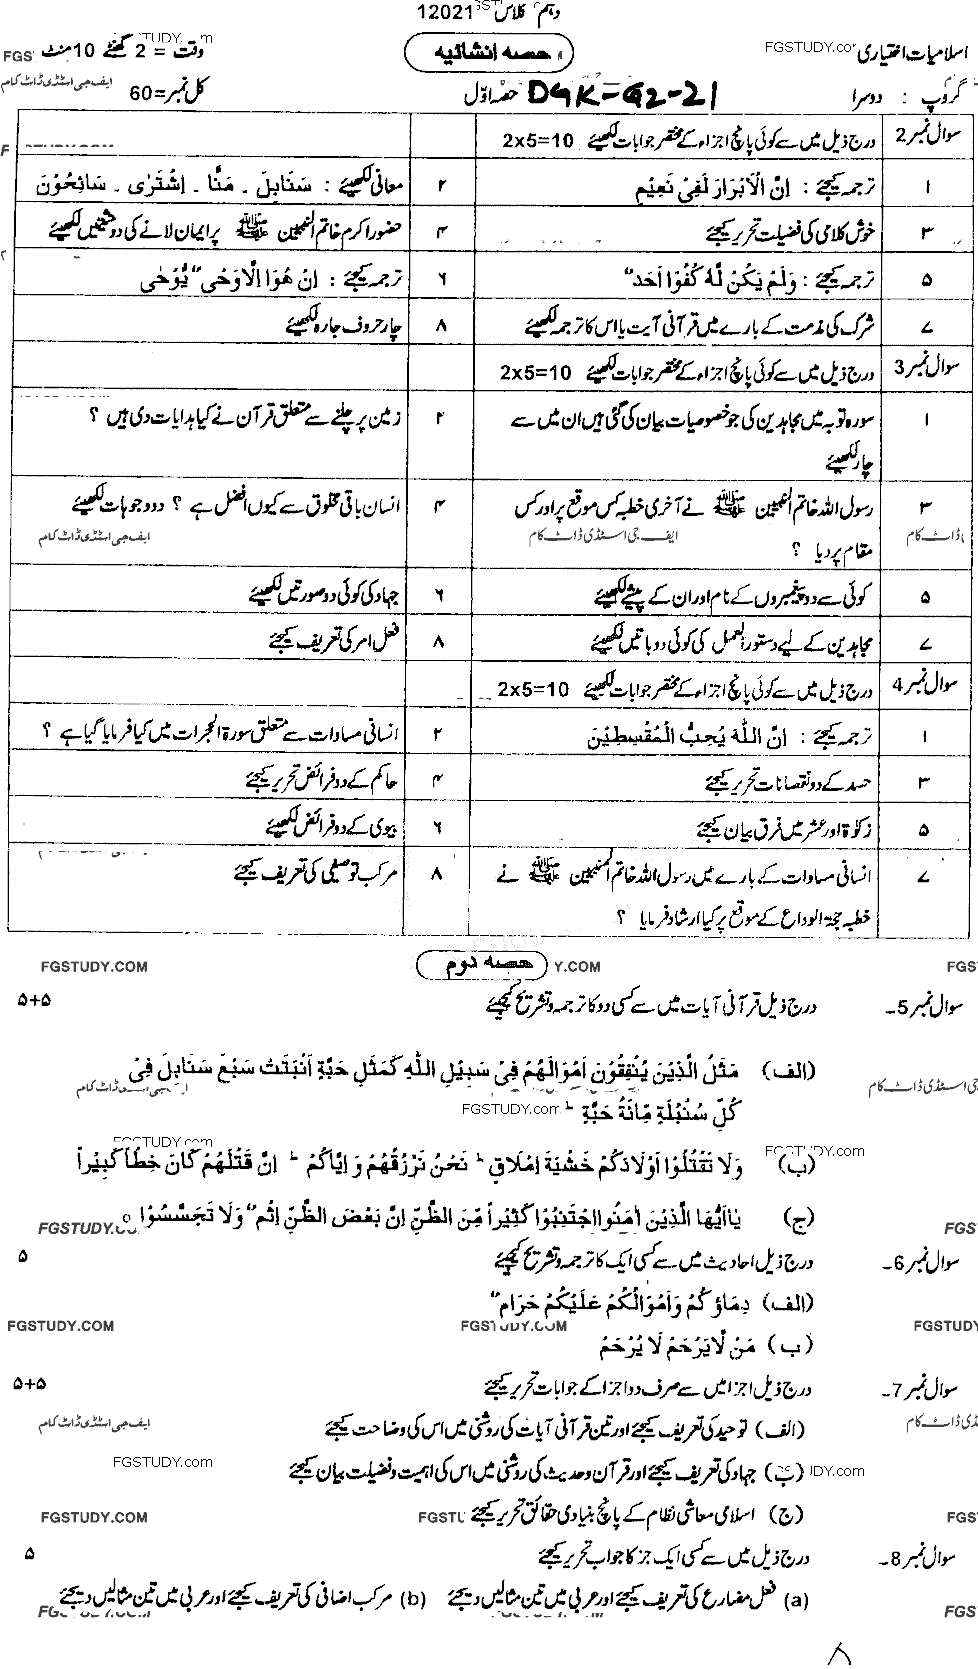 دہم کلاس 12021
اسلامیات اختیاری
حصہ انشائیہ
وقت = 2 گھنٹے 10 منٹ
FGSTUDY.com
گروپ : دوسرا
DGK-G2-21
حصہ اوّل
کل نمبر=60
ایف جی اسٹڈی ڈاٹ کام
سوال نمبر 2 درج ذیل میں سے کوئی پانچ اجزاء کے مختصر جوابات لکھیئے 2x5=10
۱ ترجمہ کیجئے : اِنَّ الْاَبْرَارَ لَفِیْ نَعِیْم
۲ معانی لکھیئے : سَنَابِلَ ۔ مَنًّا ۔ اِشْتَرٰی ۔ سَائِحُوْنَ
۳ خوش کلامی کی فضیلت تحریر کیجئے
۴ حضور اکرم خاتم النبیین ﷺ پر ایمان لانے کی دو شقیں لکھیئے
۵ ترجمہ کیجئے : وَلَمْ یَکُنْ لَّہٗ کُفُوًا اَحَد
۶ ترجمہ کیجئے : اِنْ ھُوَ اِلَّا وَحْی یُّوْحٰی
۷ شرک کی مذمت کے بارے میں قرآنی آیت یا اس کا ترجمہ لکھیئے
۸ چار حروف جارہ لکھیئے
سوال نمبر 3 درج ذیل میں سے کوئی پانچ اجزاء کے مختصر جوابات لکھیئے 2x5=10
۱ سورہ توبہ میں مجاہدین کی جو خصوصیات بیان کی گئی ہیں ان میں سے
چار لکھیئے
۲ زمین پر چلنے سے متعلق قرآن نے کیا ہدایات دی ہیں ؟
۳ رسول اللہ خاتم النبیین ﷺ نے آخری خطبہ کس موقع پر اور کس
مقام پر دیا ؟
۴ انسان باقی مخلوق سے کیوں افضل ہے ؟ دو وجوہات لکھیئے
ایف جی اسٹڈی ڈاٹ کام
ایف جی اسٹڈی ڈاٹ کام
۵ کوئی سے دو پیغمبروں کے نام اور ان کے پیشے لکھیئے
۶ جہاد کی کوئی دو صورتیں لکھیئے
۷ مجاہدین کے لیے دستور العمل کی کوئی دو باتیں لکھیئے
۸ فعل امر کی تعریف کیجئے
سوال نمبر 4 درج ذیل میں سے کوئی پانچ اجزاء کے مختصر جوابات لکھیئے 2x5=10
۱ ترجمہ کیجئے : اِنَّ اللّٰہَ یُحِبُّ الْمُقْسِطِیْنَ
۲ انسانی مساوات سے متعلق سورۃ الحجرات میں کیا فرمایا گیا ہے ؟
۳ حسد کے دو نقصانات تحریر کیجئے
۴ حاکم کے دو فرائض تحریر کیجئے
۵ زکوٰۃ اور عشر میں فرق بیان کیجئے
۶ بیوی کے دو فرائض لکھیئے
۷ انسانی مساوات کے بارے میں رسول اللہ خاتم النبیین ﷺ نے
خطبہ حجۃ الوداع کے موقع پر کیا ارشاد فرمایا ؟
۸ مرکب توصیفی کی تعریف کیجئے
FGSTUDY.COM
حصہ دوم
Y.COM
FGS
سوال نمبر 5۔ درج ذیل قرآنی آیات میں سے کسی دو کا ترجمہ و تشریح کیجئے ۵+۵
(الف) مَثَلُ الَّذِیْنَ یُنْفِقُوْنَ اَمْوَالَھُمْ فِیْ سَبِیْلِ اللّٰہِ کَمَثَلِ حَبَّةٍ اَنْبَتَتْ سَبْعَ سَنَابِلَ فِیْ
کُلِّ سُنْبُلَةٍ مِّائَةُ حَبَّةٍ
FGSTUDY.com
FGSTUDY.com
(ب) وَلَا تَقْتُلُوْا اَوْلَادَکُمْ خَشْیَةَ اِمْلَاقٍ نَحْنُ نَرْزُقُھُمْ وَ اِیَّاکُمْ اِنَّ قَتْلَھُمْ کَانَ خِطْأً کَبِیْرًا
(ج) یٰااَیُّھَا الَّذِیْنَ اٰمَنُوا اجْتَنِبُوْا کَثِیْرًا مِّنَ الظَّنِّ اِنَّ بَعْضَ الظَّنِّ اِثْم وَلَا تَجَسَّسُوْا
سوال نمبر 6۔ درج ذیل احادیث میں سے کسی ایک کا ترجمہ و تشریح کیجئے ۵
(الف) دِمَاؤُکُمْ وَاَمْوَالُکُمْ عَلَیْکُمْ حَرَام
FGSTUDY.COM
FGSTUDY.COM
FGSTUDY
(ب) مَنْ لَّا یَرْحَمْ لَا یُرْحَمْ
سوال نمبر 7۔ درج ذیل اجزا میں سے صرف دو اجزا کے جوابات تحریر کیجئے ۵+۵
(الف) توحید کی تعریف کیجئے اور تین قرآنی آیات کی روشنی میں اس کی وضاحت کیجئے
ایف جی اسٹڈی ڈاٹ کام
FGSTUDY.com
(ب) جہاد کی تعریف کیجئے اور قرآن و حدیث کی روشنی میں اس کی اہمیت و فضیلت بیان کیجئے
(ج) اسلامی معاشی نظام کے پانچ بنیادی حقائق تحریر کیجئے
FGSTUDY.COM
سوال نمبر 8۔ درج ذیل میں سے کسی ایک جز کا جواب تحریر کیجئے ۵
(a) فعل مضارع کی تعریف کیجئے اور عربی میں تین مثالیں دیجئے (b) مرکب اضافی کی تعریف کیجئے اور عربی میں تین مثالیں دیجئے